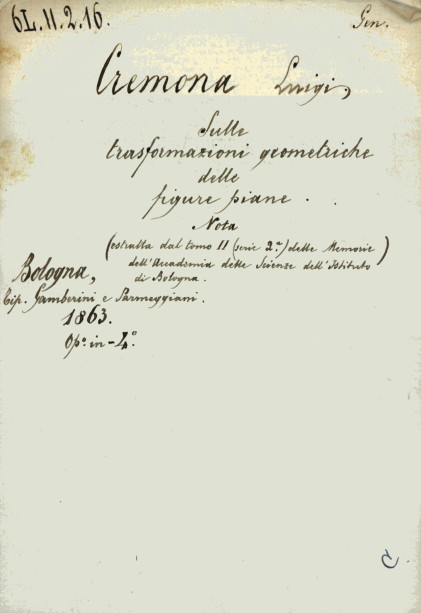 6L.11.2.16. Gen.
Cremona Luigi,
Sulle
trasformazioni geometriche
delle
figure piane.
Nota
(estratta dal tomo II (serie 2.ª) delle Memorie
dell'Accademia delle Scienze dell'Istituto
di Bologna.)
Bologna,
tip. Gamberini e Parmeggiani.
1863.
Op.º in-4.º
C